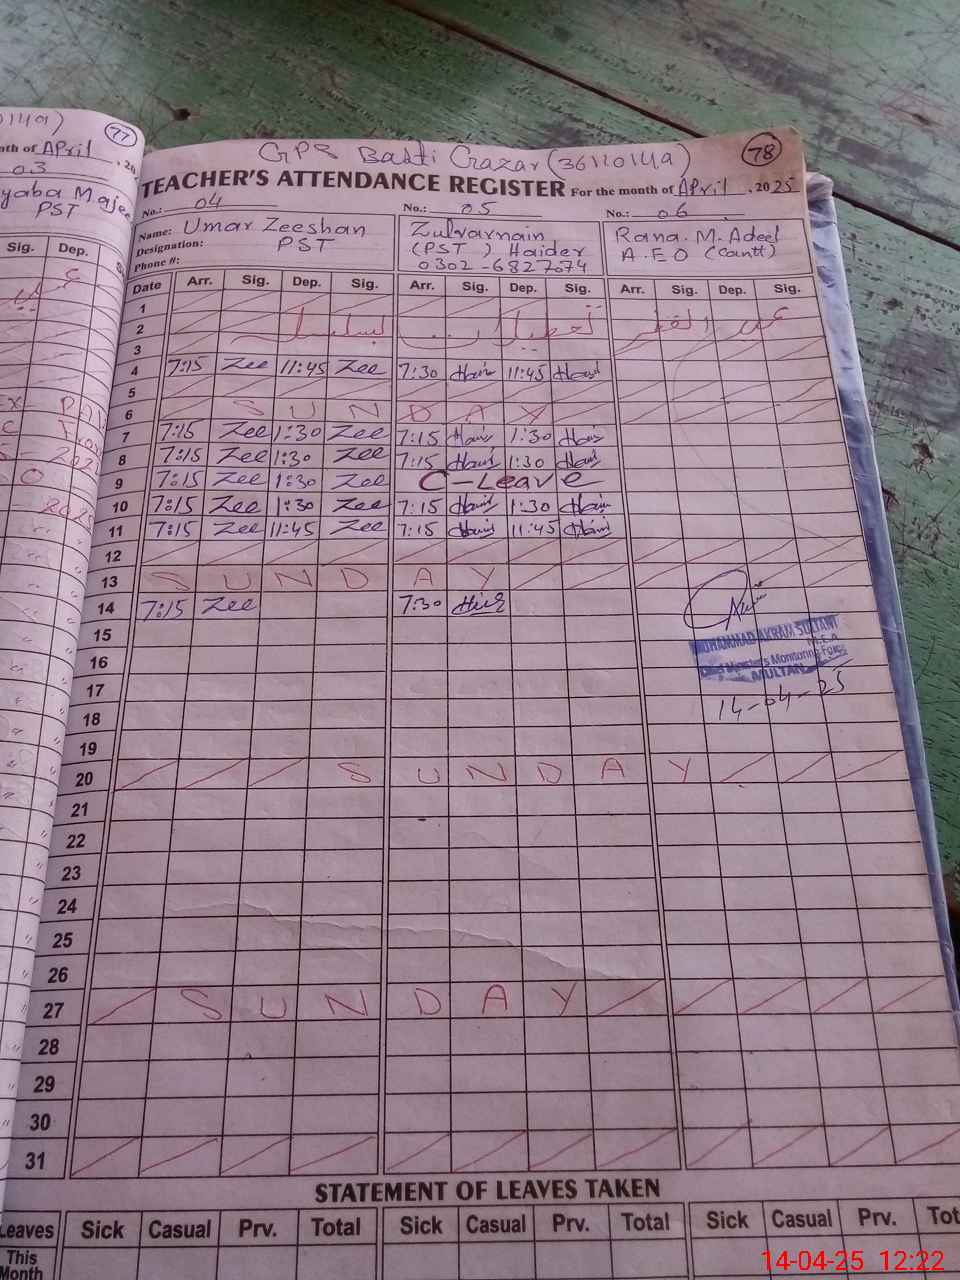 77
April
03
PST
Sig. Dep.
GPS Basti Gazar (36110149)
78
TEACHER'S ATTENDANCE REGISTER For the month of April, 2025
No.: 04 No.: 05 No.: 06
Name: Umar Zeeshan Zulqarnain Rana. M. Adeel
Designation: PST (PST) Haider A.E.O (Cantt)
Phone #: 0302-6827674
Date Arr. Sig. Dep. Sig. Arr. Sig. Dep. Sig. Arr. Sig. Dep. Sig.
1
2 عید الفطر تعطیلات بسلسلہ
3
4 7:15 Zee 11:45 Zee 7:30 Haid 11:45 Haid
5
6 SUNDAY
7 7:15 Zee 1:30 Zee 7:15 Haid 1:30 Haid
8 7:15 Zee 1:30 Zee 7:15 Haid 1:30 Haid
9 7:15 Zee 1:30 Zee C-Leave
10 7:15 Zee 1:30 Zee 7:15 Haid 1:30 Haid
11 7:15 Zee 11:45 Zee 7:15 Haid 11:45 Haid
12
13 SUNDAY
14 7:15 Zee 7:30 Haid
15
MUHAMMAD AKRAM SULTANI
M.E.A
Chief Minister's Monitoring Force
MULTAN
14-04-25
16
17
18
19
20 SUNDAY
21
22
23
24
25
26
27 SUNDAY
28
29
30
31
STATEMENT OF LEAVES TAKEN
Leaves Sick Casual Prv. Total Sick Casual Prv. Total Sick Casual Prv.
This Month
14-04-25 12:22